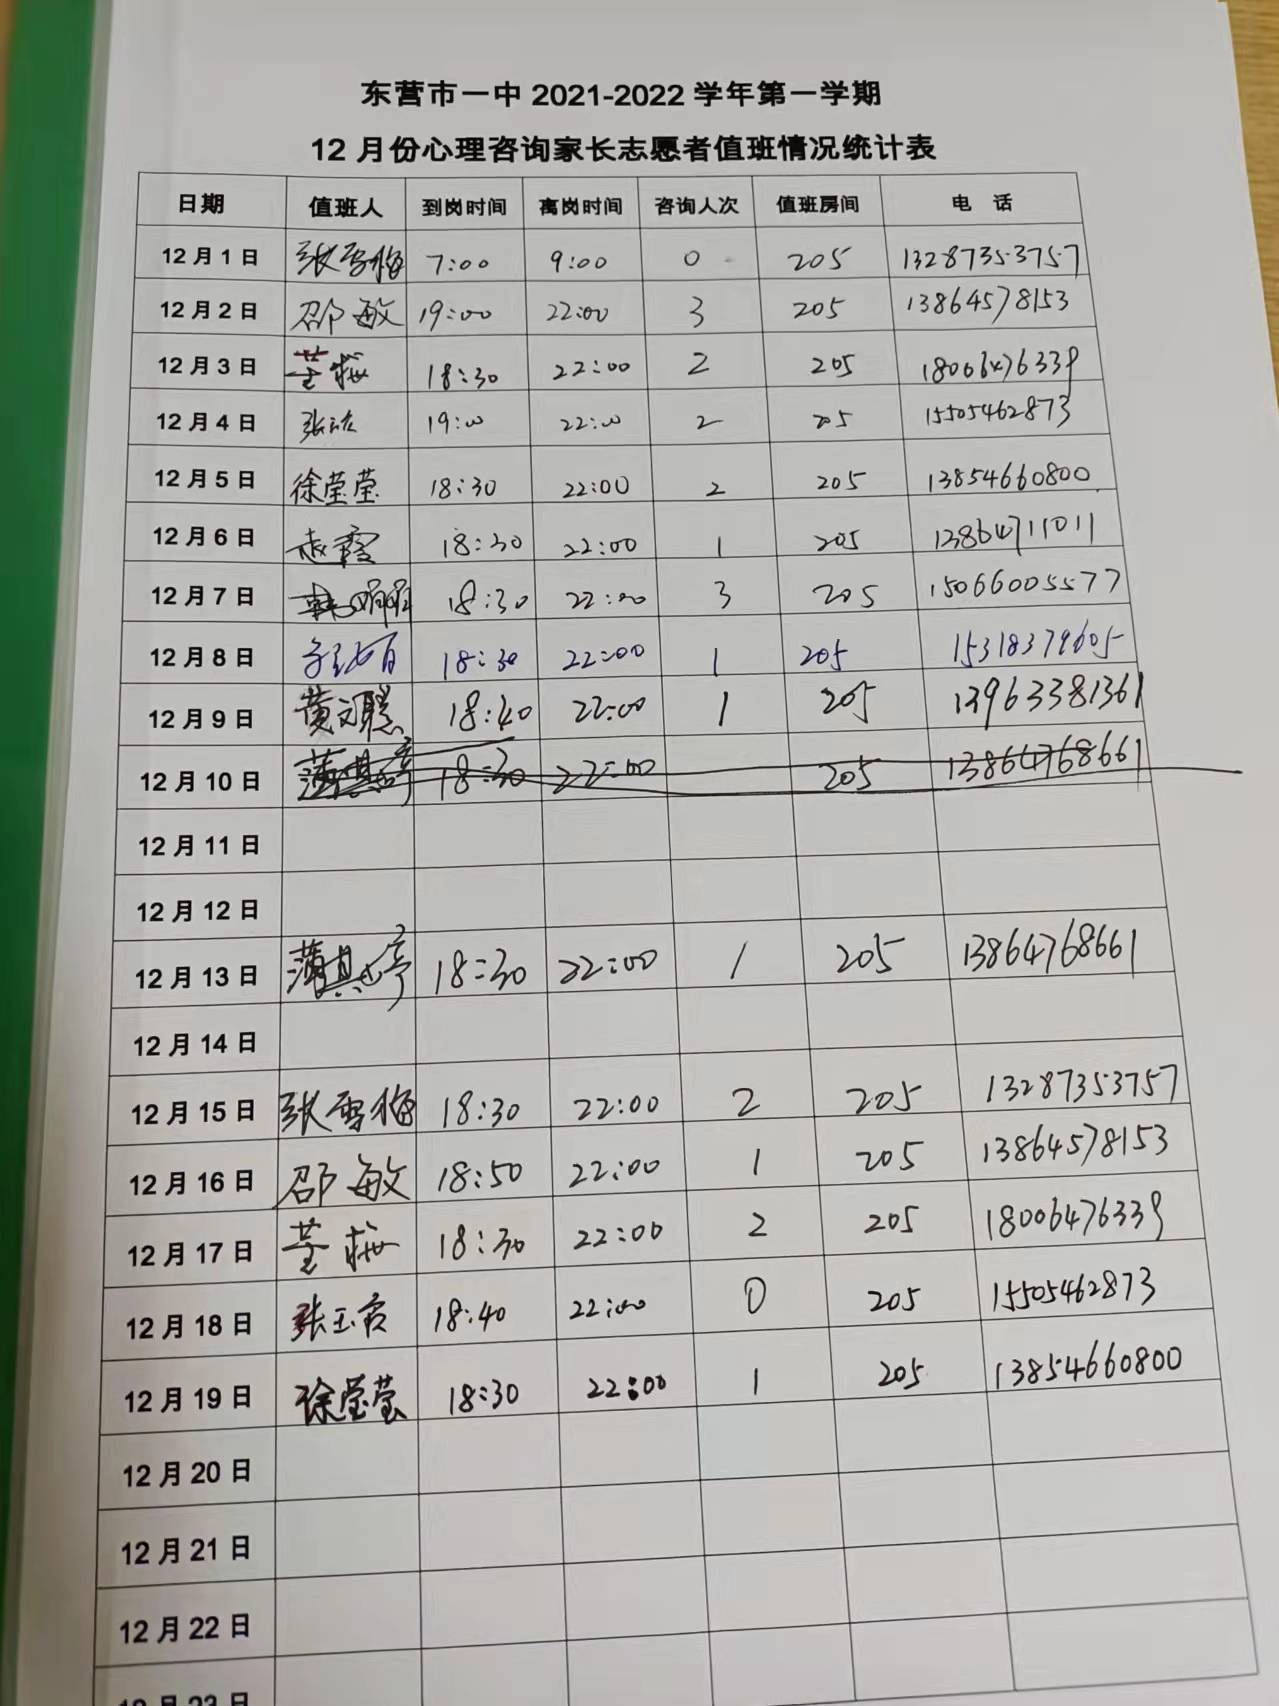 东营市一中 2021-2022 学年第一学期
12 月份心理咨询家长志愿者值班情况统计表
日期 值班人 到岗时间 离岗时间 咨询人次 值班房间 电 话
12 月 1 日 张雪梅 7:00 9:00 0 205 13287353757
12 月 2 日 邵敏 19:00 22:00 3 205 13864578153
12 月 3 日 18:30 22:00 2 205 18006476339
12 月 4 日 19:00 22:00 2 205 15505462873
12 月 5 日 徐莹莹 18:30 22:00 2 205 13854660800
12 月 6 日 赵霞 18:30 22:00 1 205 13864711011
12 月 7 日 18:30 22:00 3 205 15066005577
12 月 8 日 18:30 22:00 1 205 15318379605
12 月 9 日 黄 18:40 22:00 1 205 13963381361
12 月 10 日 蒲其亭 18:30 22:00 205 13864768661
12 月 11 日
12 月 12 日
12 月 13 日 蒲其亭 18:30 22:00 1 205 13864768661
12 月 14 日
12 月 15 日 张雪梅 18:30 22:00 2 205 13287353757
12 月 16 日 邵敏 18:50 22:00 1 205 13864578153
12 月 17 日 18:30 22:00 2 205 18006476339
12 月 18 日 张玉 18:40 22:00 0 205 15505462873
12 月 19 日 徐莹莹 18:30 22:00 1 205 13854660800
12 月 20 日
12 月 21 日
12 月 22 日
12 月 23 日